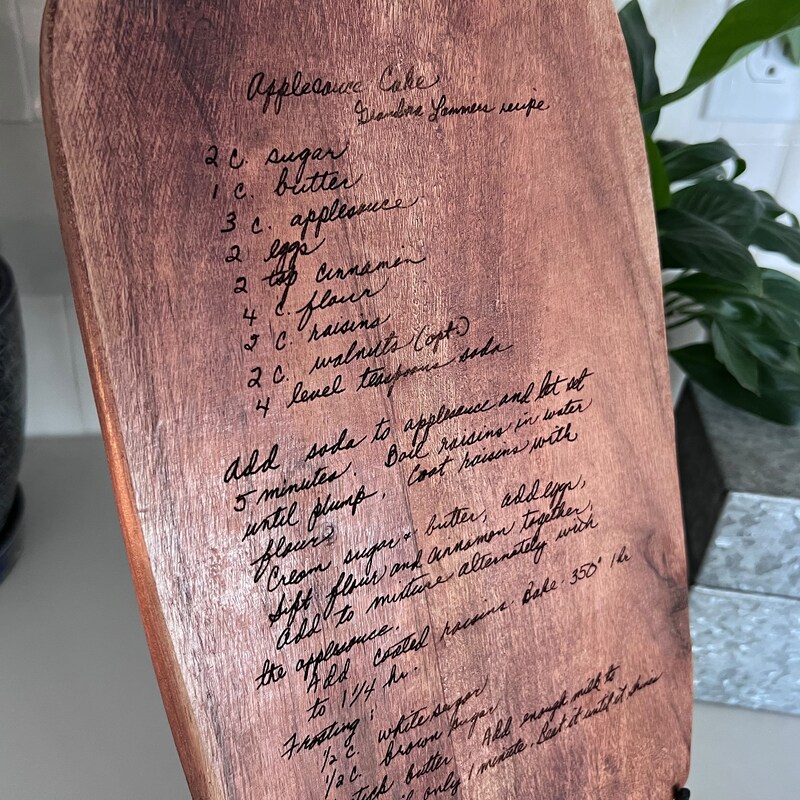 Applesauce Cake
Grandma Lammers recipe
2 c. sugar
1 c. butter
3 c. applesauce
2 eggs
2 tsp cinnamin
4 c. flour
2 c. raisins
2 c. walnuts (opt.)
4 level teaspoons soda
Add soda to applesauce and let set
5 minutes. Boil raisins in water
until plump. Coat raisins with
flour.
Cream sugar & butter, add eggs,
Sift flour and cinnamon together,
Add to mixture alternately with
the applesauce.
Add coated raisins. Bake 350° 1 hr
to 1 1/4 hr.
Frosting:
1/2 c. white sugar
1/2 c. brown sugar
stick butter. Add enough milk to
only 1 minute. Beat it until it